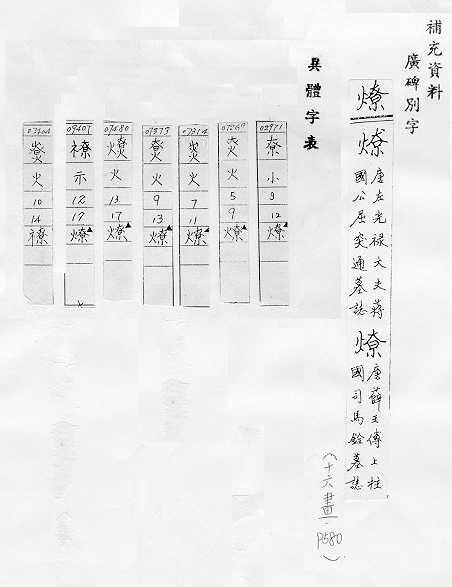 補充資料
廣碑別字
燎
燎
唐左光祿大夫蔣
國公屈突通墓誌
燎
唐薛王傅上柱
國司馬銓墓誌
(十六畫 P580)
異體字表
02971
尞
小
9
12
燎
07269
火
5
9
燎
07314
火
7
11
燎
07375
火
9
13
燎
07480
火
13
17
燎
09407
示
12
17
燎
火
10
14